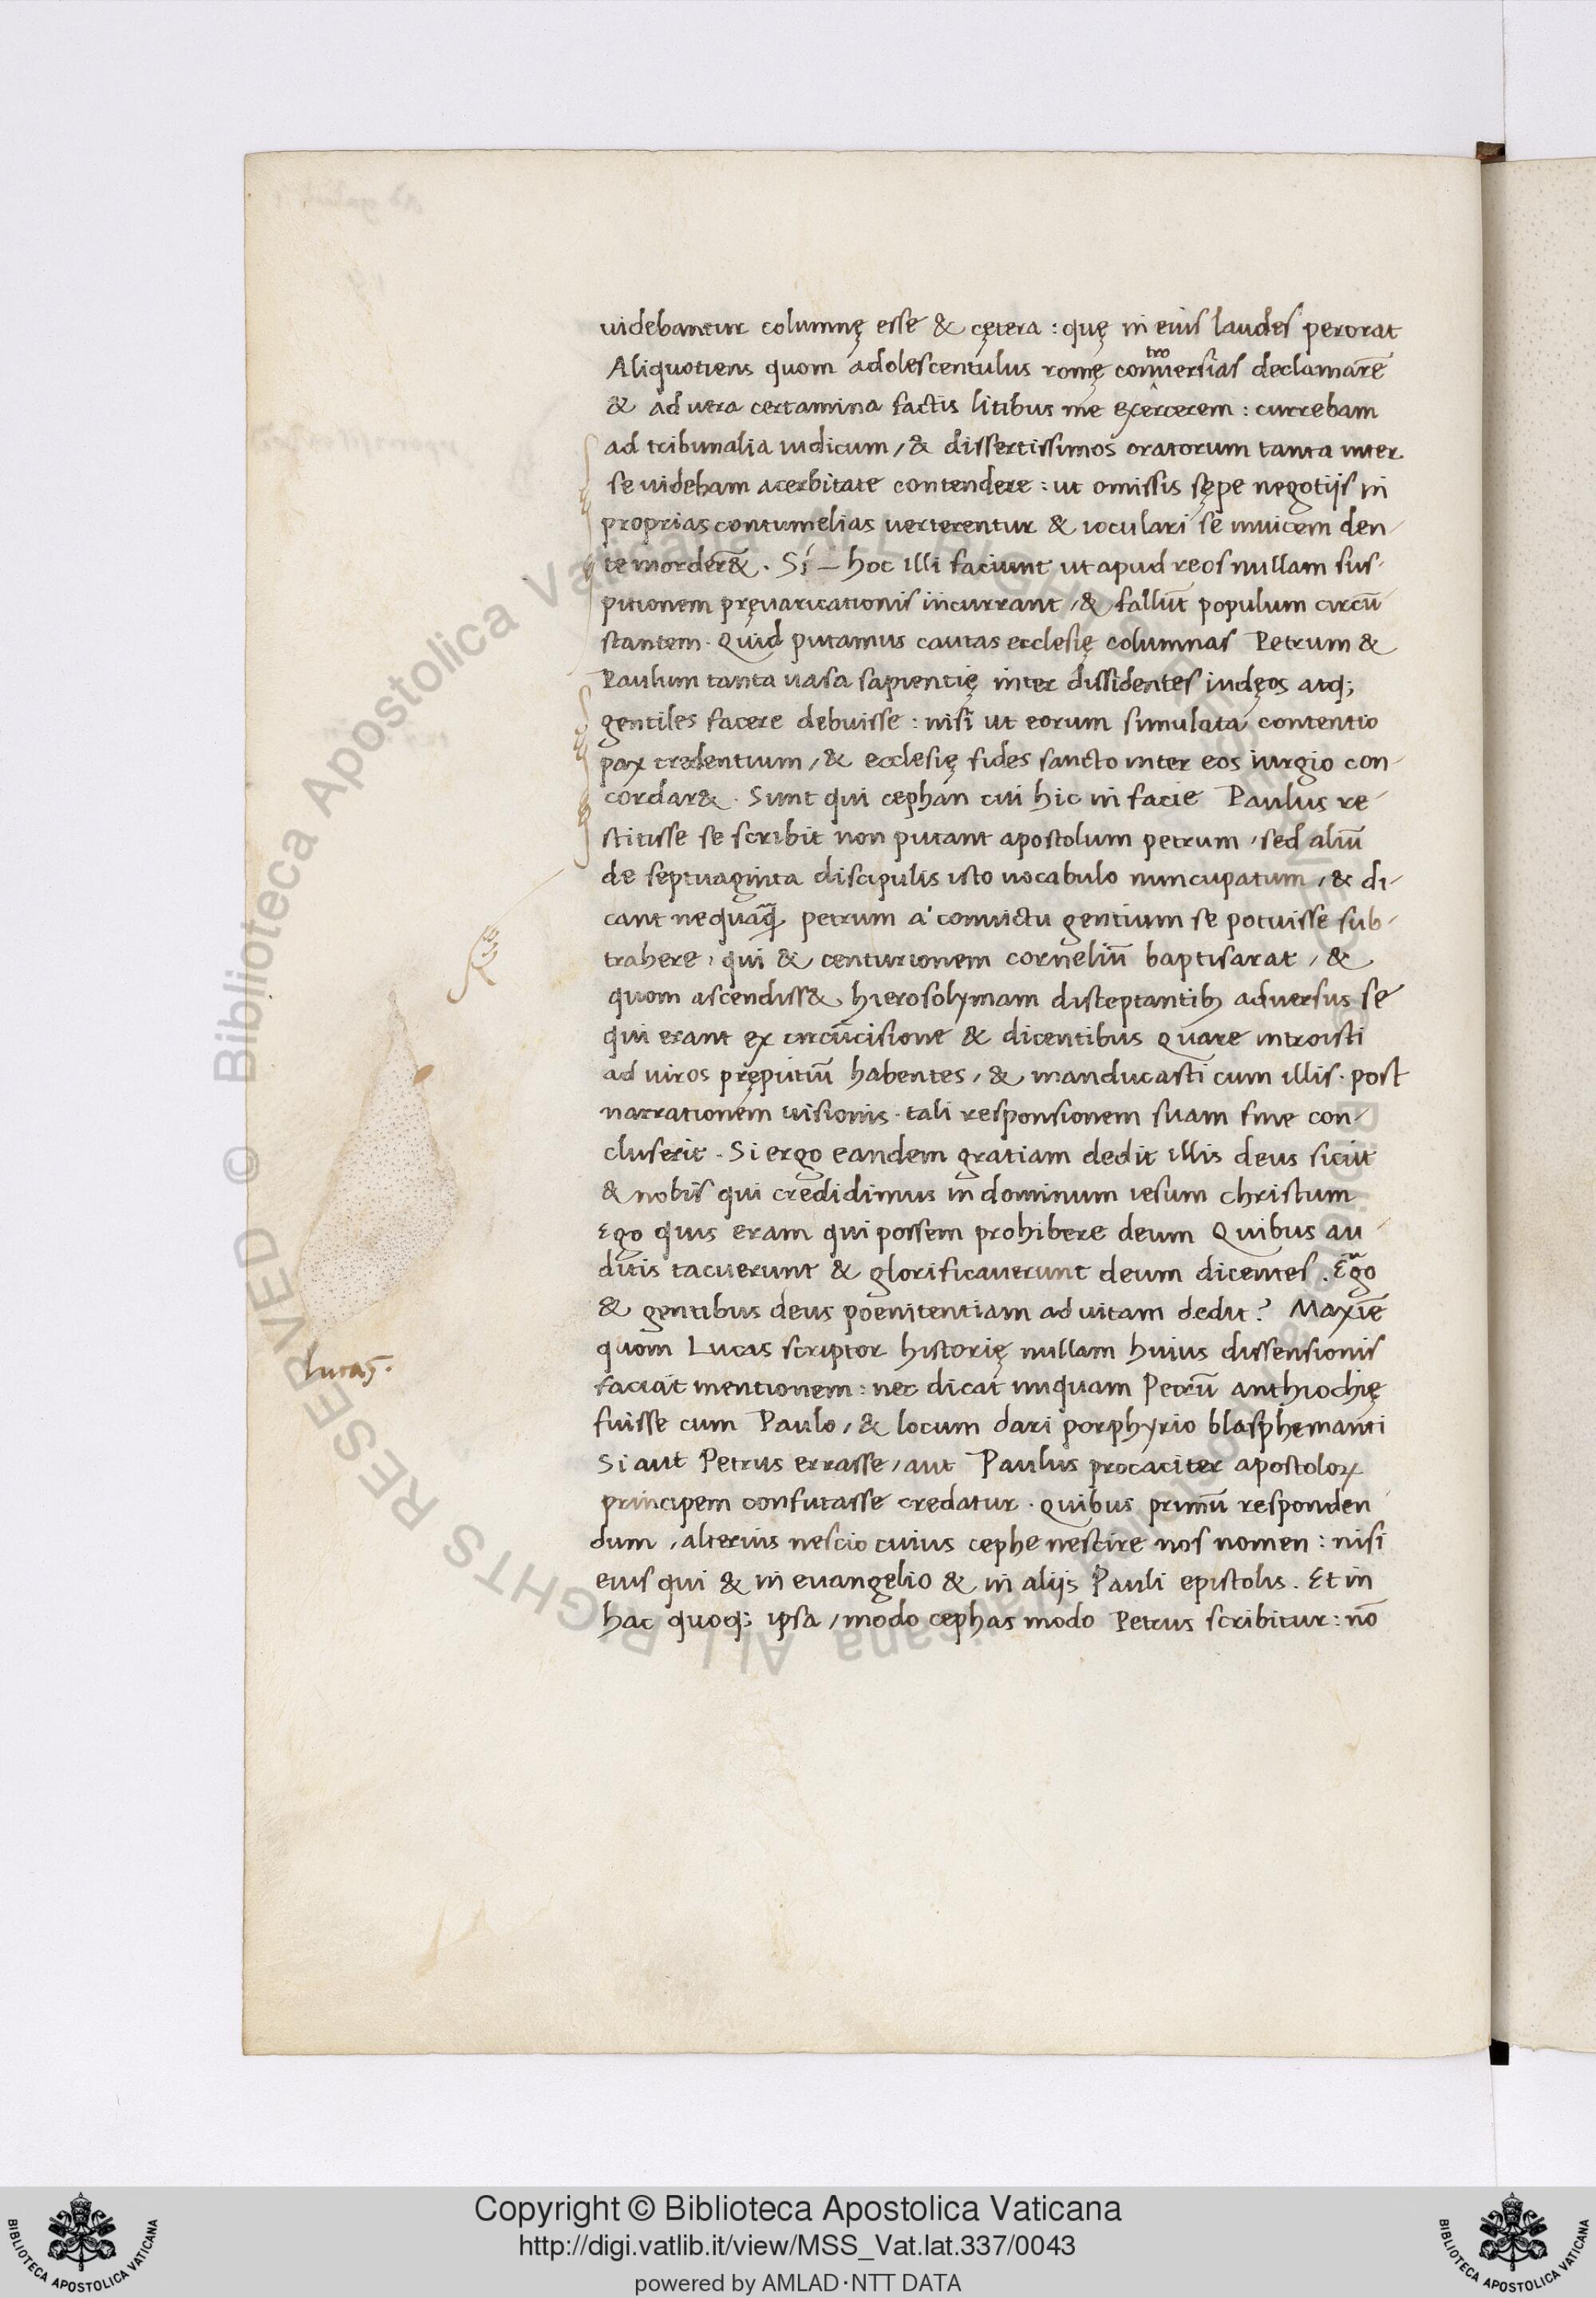 uidebantur columnę esse & cętera : quę in eius laudes perorat
Aliquotiens quom adolescentulus romę con^tro^uersias declamarē
& ad uera certamina factis litibus me exercerem : currebam
ad tribunalia iudicum / & dissertissimos oratorum tanta inter
se uidebam acerbitate contendere : ut omissis sępe negotijs in
proprias contumelias uerterentur & ioculari se inuicem den-
te morder&. Si – hoc illi faciunt ut apud reos nullam sus-
pitionem pręuaricationis incurrant / & fallūt populum circū
stantem . Quid putamus cautas ecclesię columnas Petrum &
Paulum tanta uasa sapientię inter dissidentes iudęos atq;
gentiles facere debuisse : nisi ut eorum simulata contentio
pax credentium / & ecclesię fides sancto inter eos iurgio con-
cordar& . Sunt qui cephan cui hic in facie Paulus re-
stitisse se scribit non putant apostolum petrum / sed aliū
de septuaginta discipulis isto uocabulo nuncupatum / & di-
cant nequāq̄ petrum a' conuictu gentium se potuisse sub-
trahere, qui & centurionem corneliū baptisarat / &
quom ascendiss& hierosolymam disceptantibꝫ aduersus se
qui erant ex circūcisione & dicentibus Quare introisti
ad uiros pręputiū habentes / & manducasti cum illis . post
narrationem uisionis . tali responsionem suam fine con-
cluserit . Si ergo eandem gratiam dedit illis deus sicut
& nobis qui credidimus in dominum iesum christum
Ego quis eram qui possem prohibere deum Quibus au-
ditis tacuerunt & glorificauerunt deum dicentes . Ergo
& gentibus deus poenitentiam ad uitam dedit ? Maxīe
quom Lucas scriptor historię nullam huius dissensionis
lucas.
faciat mentionem : nec dicat unquam Petrū anthiochię
fuisse cum Paulo / & locum dari porphyrio blasphemanti
Si aut Petrus errasse / aut Paulus procaciter apostoloꝝ
principem confutasse credatur . Quibus primū responden
dum / alterius nescio cuius cephe nescire nos nomen : nisi
eius qui & in euangelio & in alijs Pauli epistolis . Et in
hac quoq; ipsa / modo cephas modo Petrus scribitur : nō
© Biblioteca Apostolica Vaticana ALL RIGHTS RESERVED
Copyright © Biblioteca Apostolica Vaticana
http://digi.vatlib.it/view/MSS_Vat.lat.337/0043
powered by AMLAD·NTT DATA
BIBLIOTECA APOSTOLICA VATICANA
BIBLIOTECA APOSTOLICA VATICANA